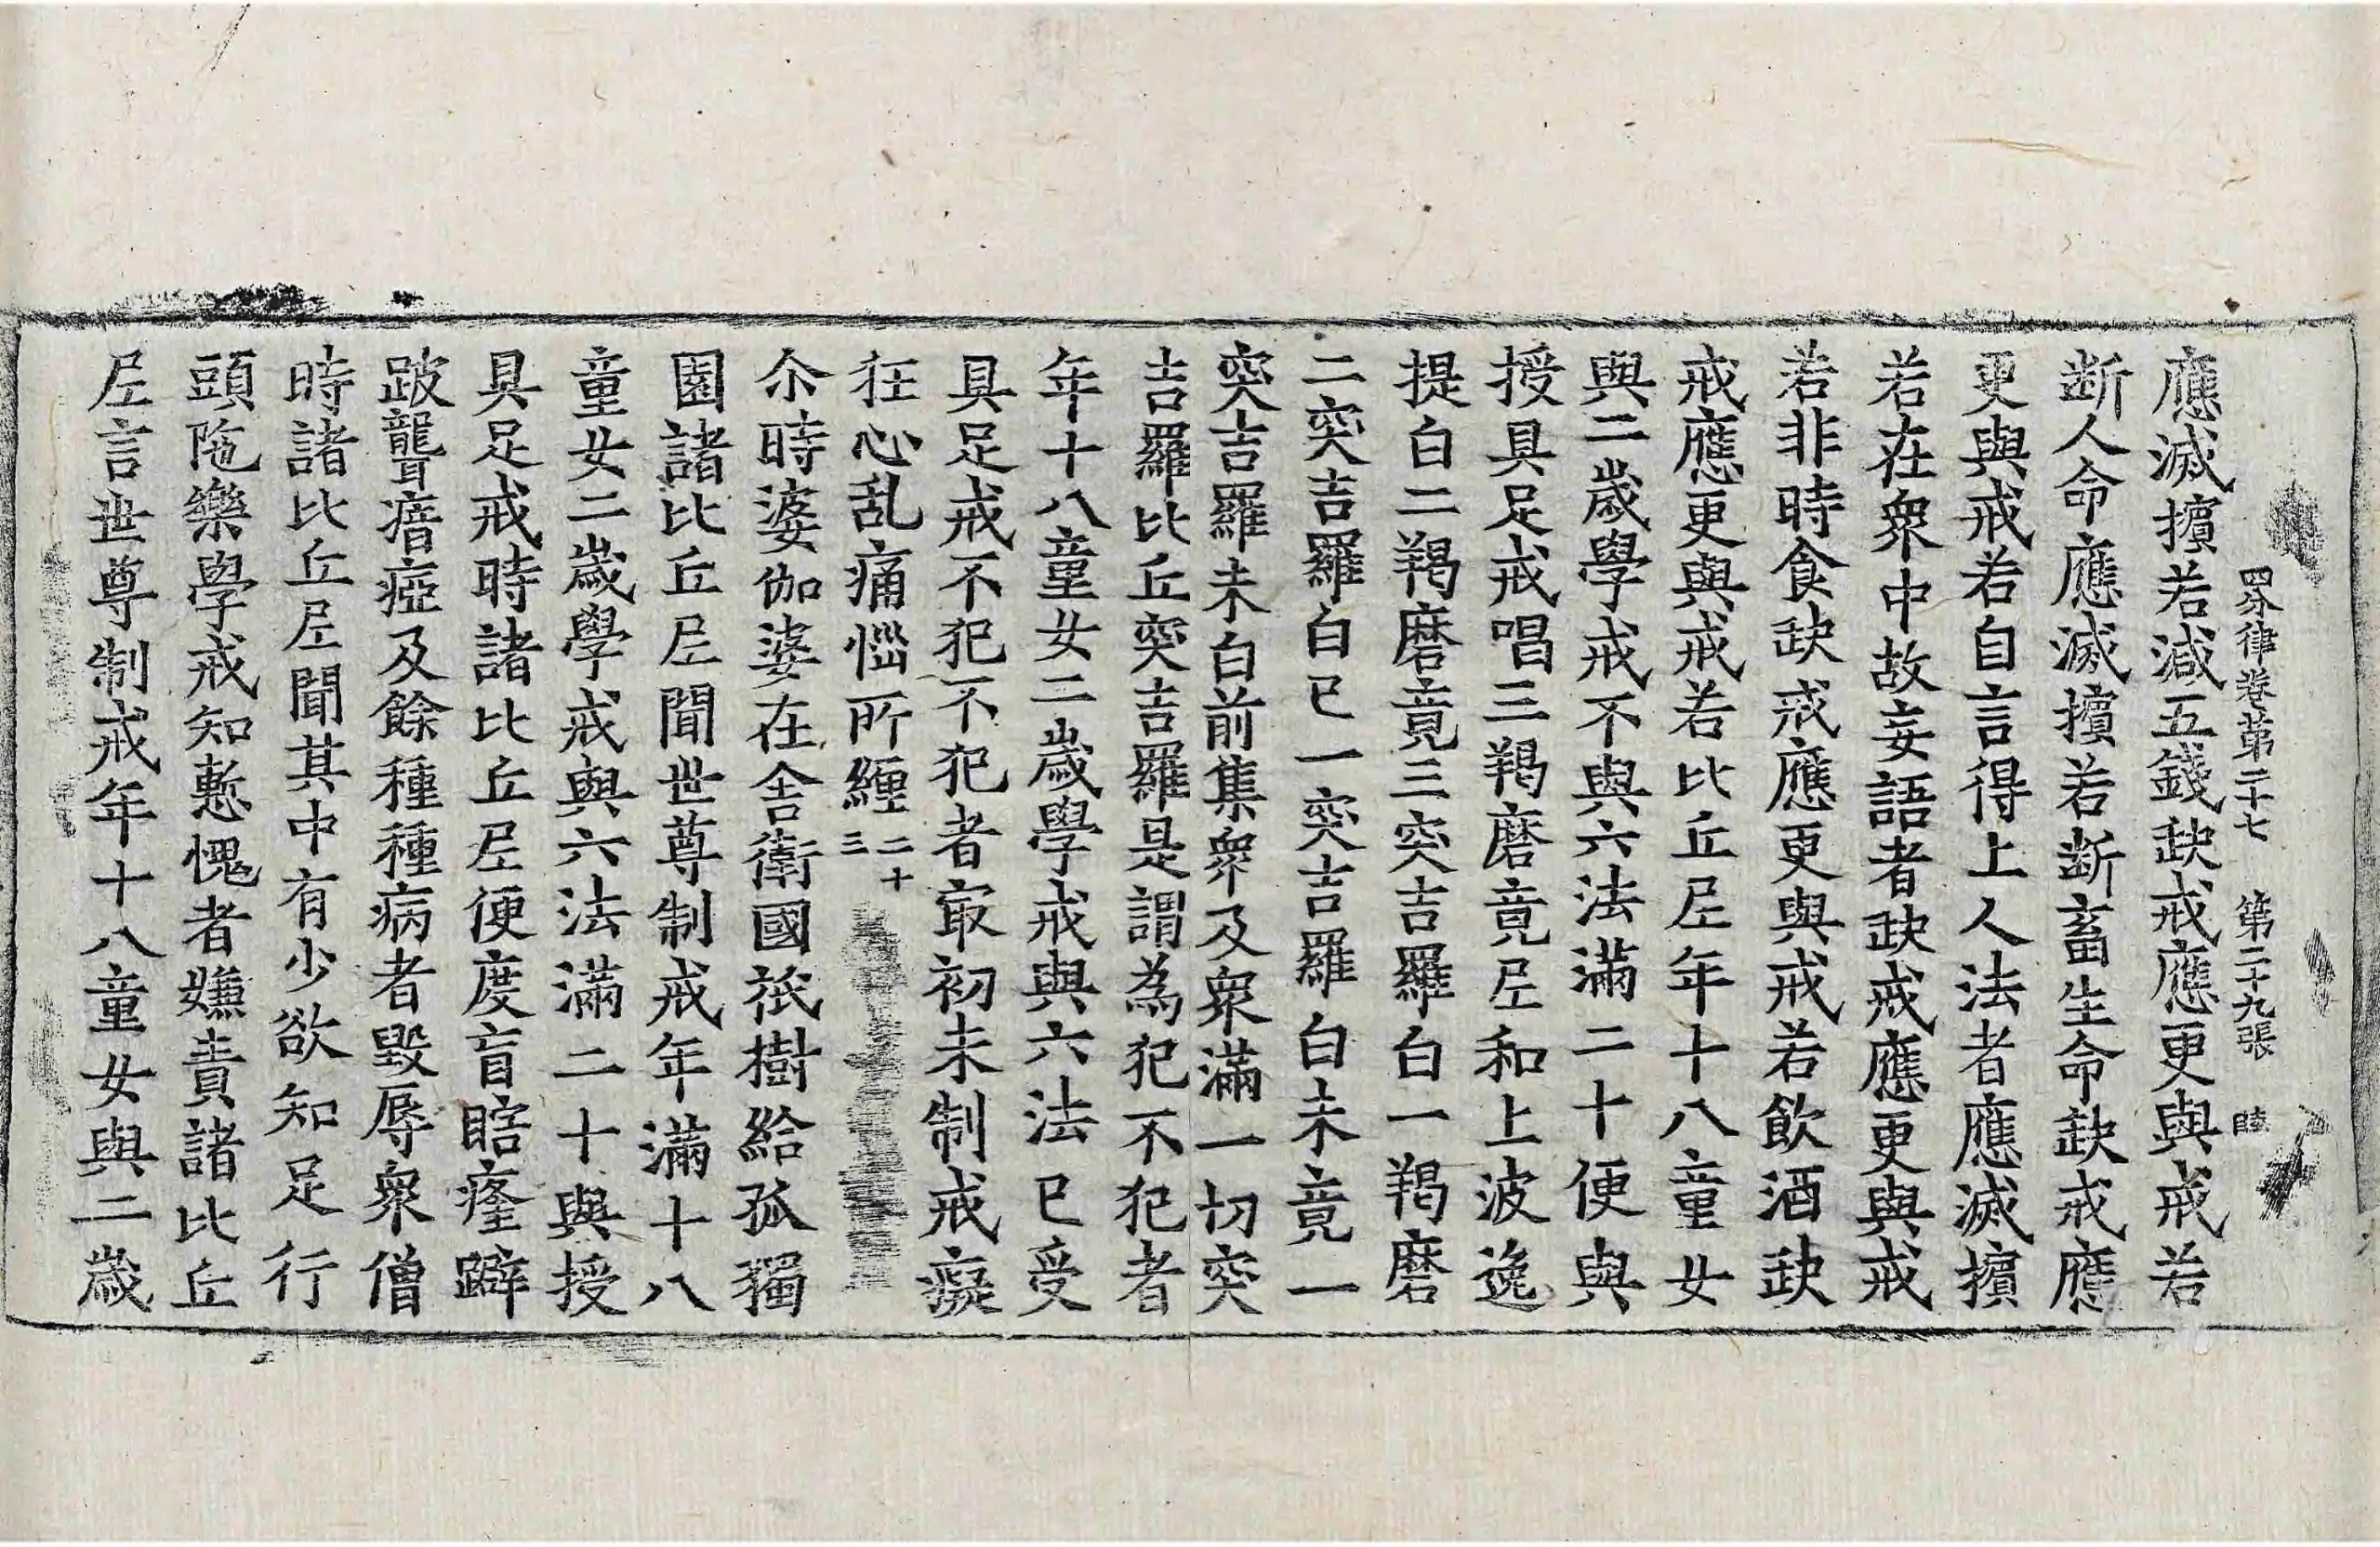 四分律卷苐二十七 第二十九張 睦
應滅擯若減五錢缺戒應更與戒若
断人命應滅擯若断畜生命缺戒應
更與戒若自言得上人法者應滅擯
若在衆中故妄語者缺戒應更與戒
若非時食缺戒應更與戒若飲酒缺
戒應更與戒若比丘尼年十八童女
與二歲學戒不與六法滿二十便與
授具足戒唱三羯磨竟尼和上波逸
提白二羯磨竟三突吉羅白一羯磨
二突吉羅白已一突吉羅白未竟一
突吉羅未白前集衆及衆滿一切突
吉羅比丘突吉羅是謂為犯不犯者
年十八童女二歲學戒與六法已受
具足戒不犯不犯者㝡初未制戒癡
狂心乱痛惱所纏 二十三
尒時婆伽婆在舍衛國祇樹給孤獨
園諸比丘尼聞世尊制戒年滿十八
童女二歲學戒與六法滿二十與授
具足戒時諸比丘尼便度盲瞎癃躃
跛聾瘖瘂及餘種種病者毀辱衆僧
時諸比丘尼聞其中有少欲知足行
頭陁樂學戒知慙愧者嫌責諸比丘
尼言世尊制戒年十八童女與二歲